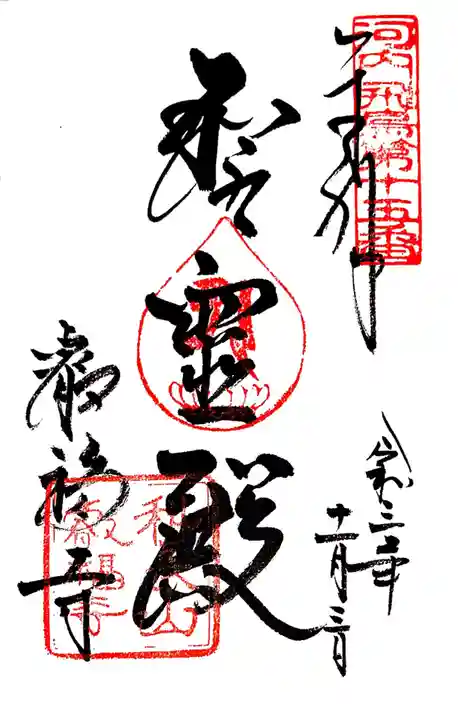 河内飛鳥第十五番
奉拝
令和三年
三日
聖靈殿
叡福寺
叡福寺